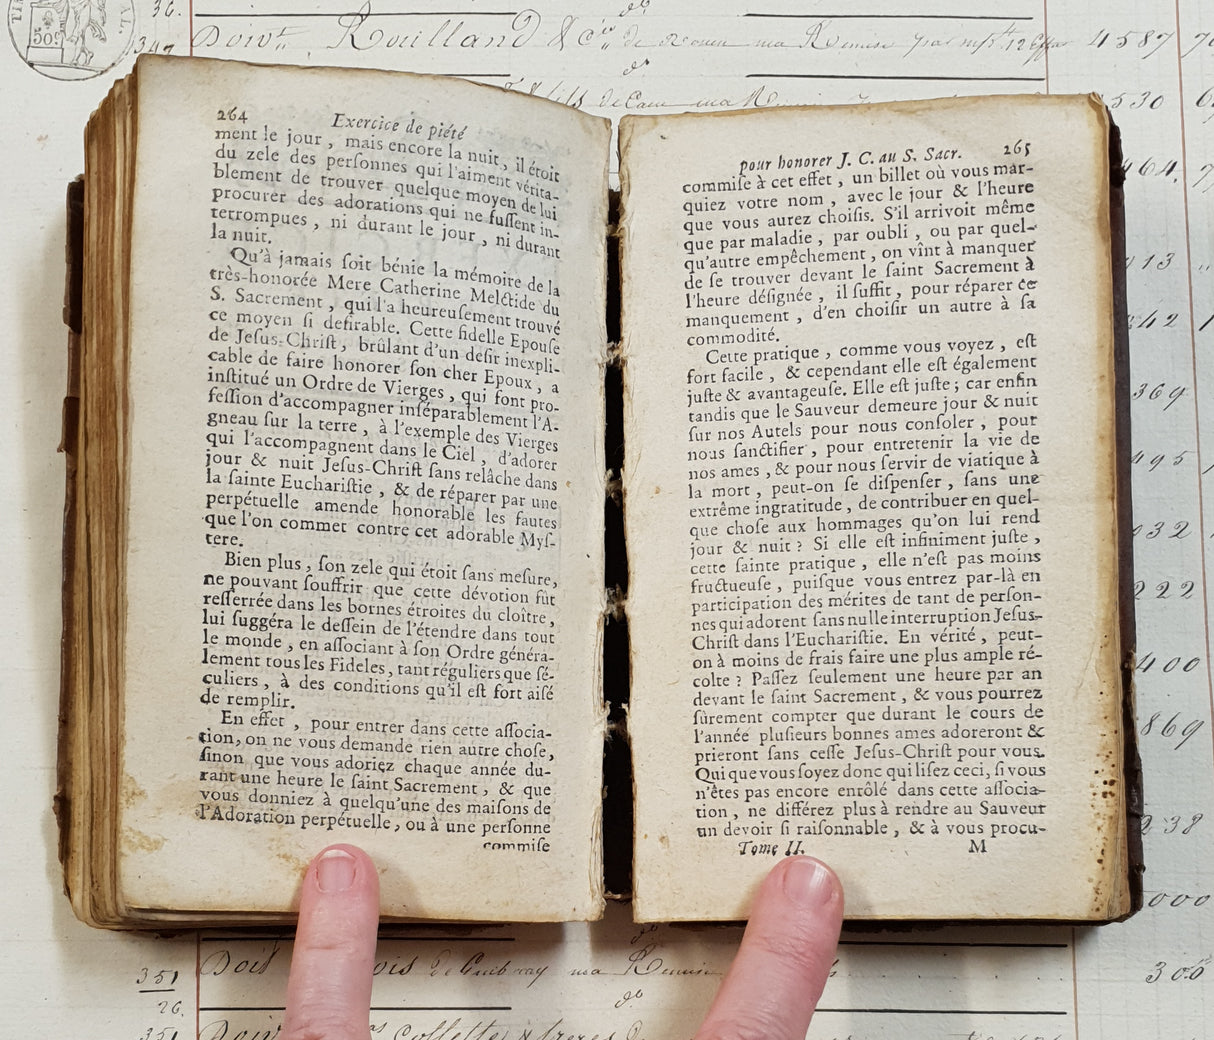 36.
do
347
Doivt Rouilland & Cie de Rouen ma Remise
4587
do
530
264
Exercice de piété
ment le jour, mais encore la nuit, il étoit
du zele des perſonnes qui l'aiment vérita-
blement de trouver quelque moyen de lui
procurer des adorations qui ne fuſſent in-
terrompues, ni durant le jour, ni durant
la nuit.
Qu'à jamais ſoit bénie la mémoire de la
très-honorée Mere Catherine Melctide du
S. Sacrement, qui l'a heureuſement trouvé
ce moyen ſi deſirable. Cette fidelle Epouſe
de Jeſus-Chriſt, brûlant d'un deſir inexpli-
cable de faire honorer ſon cher Epoux, a
inſtitué un Ordre de Vierges, qui font pro-
feſſion d'accompagner inſéparablement l'A-
gneau ſur la terre, à l'exemple des Vierges
qui l'accompagnent dans le Ciel, d'adorer
jour & nuit Jeſus-Chriſt ſans relâche dans
la ſainte Euchariſtie, & de réparer par une
perpétuelle amende honorable les fautes
que l'on commet contre cet adorable Myſ-
tere.
Bien plus, ſon zele qui étoit ſans meſure,
ne pouvant ſouffrir que cette dévotion fût
reſſerrée dans les bornes étroites du cloître,
lui ſuggéra le deſſein de l'étendre dans tout
le monde, en aſſociant à ſon Ordre généra-
lement tous les Fideles, tant réguliers que ſé-
culiers, à des conditions qu'il eſt fort aiſé
de remplir.
En effet, pour entrer dans cette aſſocia-
tion, on ne vous demande rien autre choſe,
ſinon que vous adoriez chaque année du-
rant une heure le ſaint Sacrement, & que
vous donniez à quelqu'une des maiſons de
l'Adoration perpétuelle, ou à une perſonne
commiſe
pour honorer J. C. au S. Sacr.
265
commiſe à cet effet, un billet où vous mar-
quiez votre nom, avec le jour & l'heure
que vous aurez choiſis. S'il arrivoit même
que par maladie, par oubli, ou par quel-
qu'autre empêchement, on vînt à manquer
de ſe trouver devant le ſaint Sacrement à
l'heure déſignée, il ſuffit, pour réparer ce
manquement, d'en choiſir un autre à ſa
commodité.
Cette pratique, comme vous voyez, eſt
fort facile, & cependant elle eſt également
juſte & avantageuſe. Elle eſt juſte; car enfin
tandis que le Sauveur demeure jour & nuit
ſur nos Autels pour nous conſoler, pour
nous ſanctifier, pour entretenir la vie de
nos ames, & pour nous ſervir de viatique à
la mort, peut-on ſe diſpenſer, ſans une
extrême ingratitude, de contribuer en quel-
que choſe aux hommages qu'on lui rend
jour & nuit? Si elle eſt infiniment juſte,
cette ſainte pratique, elle n'eſt pas moins
fructueuſe, puiſque vous entrez par-là en
participation des mérites de tant de perſon-
nes qui adorent ſans nulle interruption Jeſus-
Chriſt dans l'Euchariſtie. En vérité, peut-
on à moins de frais faire une plus ample ré-
colte? Paſſez ſeulement une heure par an
devant le ſaint Sacrement, & vous pourrez
ſûrement compter que durant le cours de
l'année pluſieurs bonnes ames adoreront &
prieront ſans ceſſe Jeſus-Chriſt pour vous.
Qui que vous ſoyez donc qui liſez ceci, ſi vous
n'êtes pas encore enrôlé dans cette aſſocia-
tion, ne différez plus à rendre au Sauveur
un devoir ſi raiſonnable, & à vous procu-
Tome II. M
464.
013
242
369
495
032
222
400
869
238
000
do
351
Doit
ma Remise
300
26.
do
351
Doiv
Collette & frères